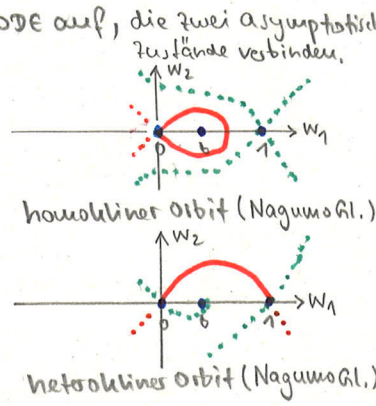 ODE auf, die zwei asymptotisch
Zustände verbinden.
w₂
0 b 1 w₁
homokliner Orbit (Nagumo Gl.)
w₂
0 b 1 w₁
heterokliner Orbit (Nagumo Gl.)